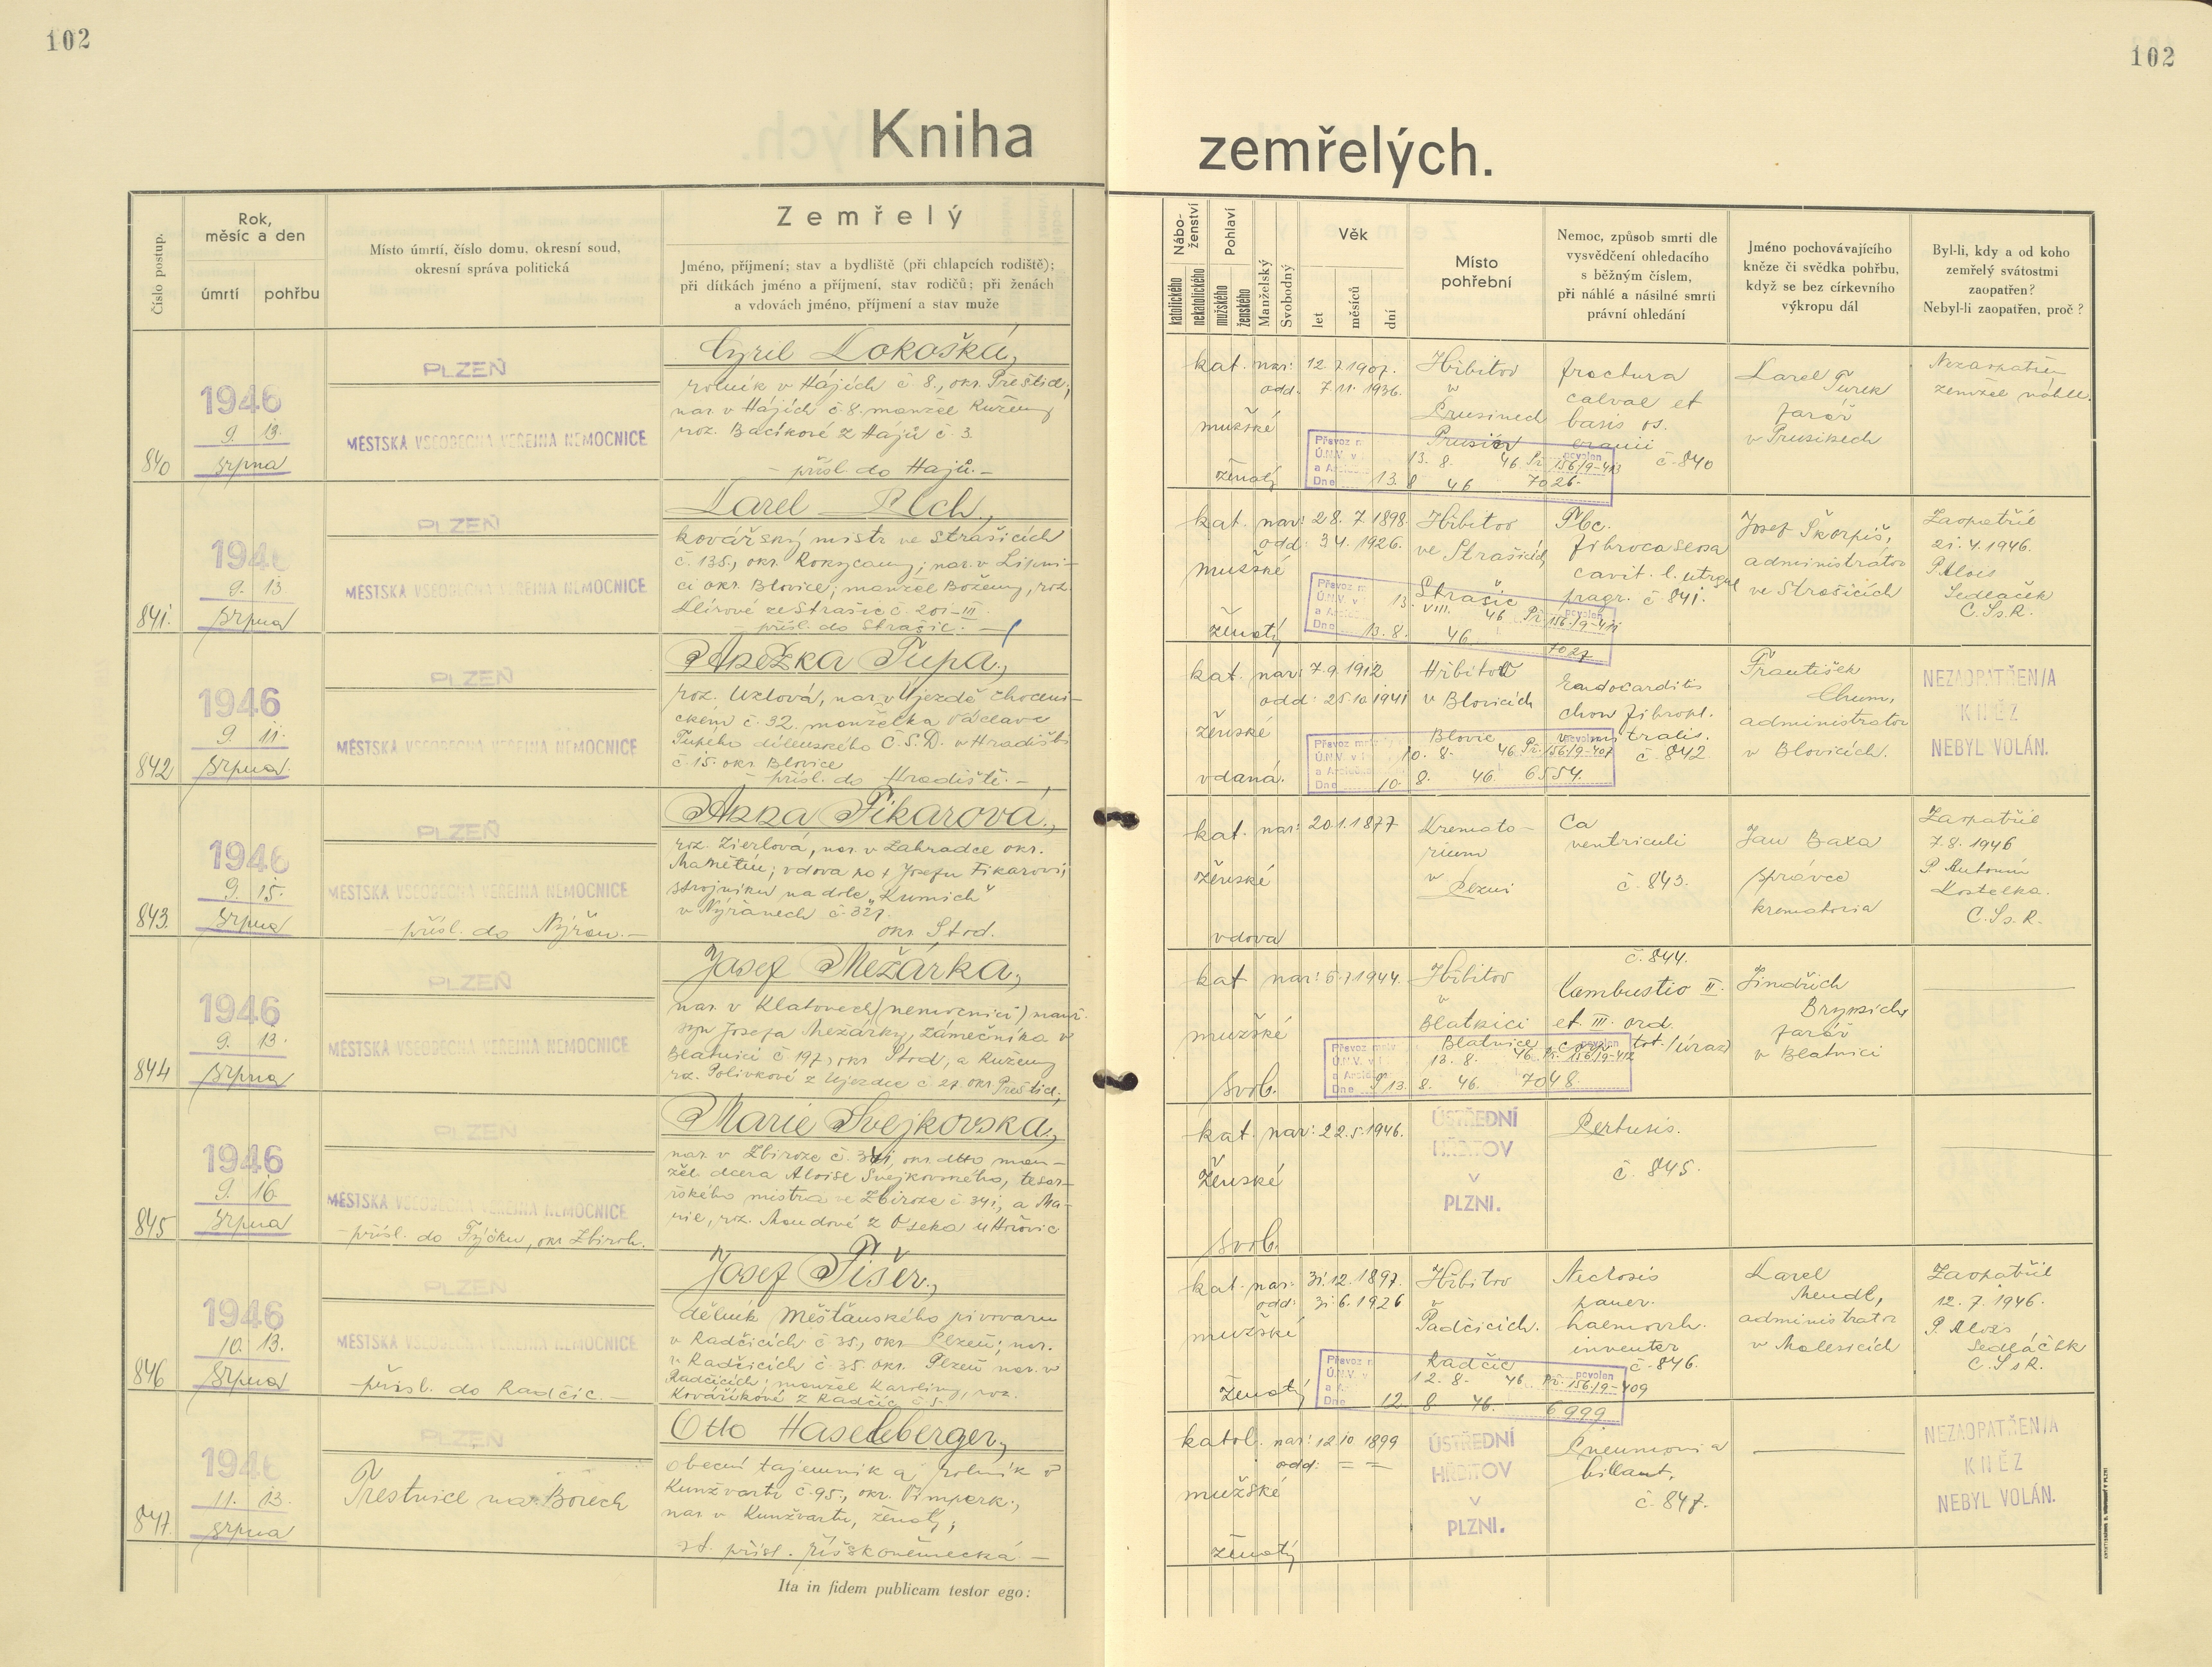 102
102
Kniha zemřelých.
Číslo postup.
Rok,
měsíc a den
úmrtí
pohřbu
Místo úmrtí, číslo domu, okresní soud,
okresní správa politická
Zemřelý
Jméno, příjmení; stav a bydliště (při chlapcích rodiště);
při dítkách jméno a příjmení, stav rodičů; při ženách
a vdovách jméno, příjmení a stav muže
Nábo-
ženství
katolického
nekatolického
Pohlaví
mužského
ženského
Manželský
Svobodný
Věk
let
měsíců
dní
Místo
pohřební
Nemoc, způsob smrti dle
vysvědčení ohledacího
s běžným číslem,
při náhlé a násilné smrti
právní ohledání
Jméno pochovávajícího
kněze či svědka pohřbu,
když se bez církevního
výkropu dál
Byl-li, kdy a od koho
zemřelý svátostmi
zaopatřen?
Nebyl-li zaopatřen, proč?
840
1946
9. 13.
srpna
PLZEŇ
MĚSTSKÁ VŠEOBECNÁ VEŘEJNÁ NEMOCNICE
Cyril
rolník v Hájích č. 8., okr. Přeštice,
nar. v Hájích č. 8. manžel Růženy
roz. Bačíkové z Hájů č. 3.
– přísl. do Hájů. –
kat. nar: 12.7.1907.
odd. 7.11.1936.
mužské
ženatý
Hřbitov
v
Prusinech
Prusiny
fractura
calvae et
basis os.
cranii
č. 840
Převoz
povolen
13. 8. 46. 156/9-413
Dne 13. 8. 46 7026.
Karel
Turek
farář
v Prusinech
Nezaopatřen
zemřel náhle.
841.
1946
9. 13.
srpna
PLZEŇ
MĚSTSKÁ VŠEOBECNÁ VEŘEJNÁ NEMOCNICE
Karel
kovářský mistr ve Strašicích
č. 135., okr. Rokycany; nar. v Lipni-
ci okr. Blovice; manžel Boženy, roz.
Klírové ze Strašic č. 201-III.
– přísl. do Strašic. –
kat. nar: 28.7.1898.
odd: 3.4.1926.
mužské
ženatý
Hřbitov
ve Strašicích
Strašic
Tbc.
fibrocaseosa
cavit. l. utrque
č. 841.
Převoz
povolen
13. VIII. 46 156/9-414
Dne 13. 8. 46 7027
Josef Škorpil,
administrátor
ve Strašicích
Zaopatřil
21.4.1946.
P. Alois
Sedláček
C.Ss.R.
842
1946
9. 11.
srpna
PLZEŇ
MĚSTSKÁ VŠEOBECNÁ VEŘEJNÁ NEMOCNICE
Anežka Tupá,
roz. Uzlová, nar. v Újezdě choceni-
ckém č. 32. manželka Václava
Tupého dílenského Č.S.D. v Hradišti
č. 15. okr. Blovice
– přísl. do Hradiště. –
kat. nar: 7.9.1912
odd: 25.10.1941
ženské
vdaná.
Hřbitov
v Blovicích
Blovic
Endocarditis
chron. fibropl.
č. 842
Převoz
povolen
10. 8. 46. 156/9-407
Dne 10. 8. 46. 6554.
František
Chum,
administrátor
v Blovicích.
NEZAOPATŘEN/A
KNĚZ
NEBYL VOLÁN.
843.
1946
9. 15.
srpna
PLZEŇ
MĚSTSKÁ VŠEOBECNÁ VEŘEJNÁ NEMOCNICE
– přísl. do Nýřan. –
Anna Fikarová,
roz. Zierlová, nar. v Zahradce okr.
Manětín; vdova po † Josefu Fikarovi,
strojníku na dole „Krimich“
v Nýřanech č. 327.
okr. Stod.
kat. nar: 20.1.1877
ženské
vdova
Kremato-
rium
v
Plzni
Ca
ventriculi
č. 843.
Jan Baxa
správce
krematoria
Zaopatřil
7.8.1946
P. Antonín
Kostelka.
C.Ss.R.
844
1946
9. 13.
srpna
PLZEŇ
MĚSTSKÁ VŠEOBECNÁ VEŘEJNÁ NEMOCNICE
Josef Mežárka,
nar. v Klatovech (nemocnici) manž.
syn Josefa Mežárky, zámečníka v
Blatnici č. 197, okr. Stod, a Růženy
roz. Polívkové z Újezdce č. 27. okr. Přeštice,
kat. nar: 5.7.1944.
mužské
svob.
Hřbitov
v
Blatnici
Blatnice
č. 844.
Combustio II.
et III. grd.
tot. /úraz/
Převoz
povolen
13. 8. 46. 156/9-412
Dne 13. 8. 46. 7048.
Jindřich
farář
v Blatnici
845
1946
9. 16.
srpna
PLZEŇ
MĚSTSKÁ VŠEOBECNÁ VEŘEJNÁ NEMOCNICE
– přísl. do Týčku, okr. Zbiroh.
Marie Švejkovská,
nar. v Zbiroze č. 341, okr. dtto man-
žel. dcera Aloise Švejkovského, tesař-
ského mistra ve Zbiroze č. 341, a Ma-
rie, roz. Moudové z Oseka u Hořovic
kat. nar: 22.5.1946.
ženské
svob.
ÚSTŘEDNÍ
HŘBITOV
v
PLZNI.
Pertusis.
č. 845.
846
1946
10. 13.
srpna
PLZEŇ
MĚSTSKÁ VŠEOBECNÁ VEŘEJNÁ NEMOCNICE
– přísl. do Radčic. –
Josef Fišer,
dělník Měšťanského pivovaru
v Radčicích č. 35., okr. Plzeň; nar.
v Radčicích č. 35. okr. Plzeň nar. v
Radčicích; manžel Karoliny, roz.
Kovaříkové z Radčic č. 5.
kat. nar: 31.12.1897.
odd: 31.6.1926
mužské
ženatý
Hřbitov
v
Radčicích.
Radčic
Necrosis
pancr.
haemorrh.
č. 846.
Převoz
povolen
12. 8. 46. 156/9-409
Dne 12. 8. 46. 6999
Karel
Mendl,
administrátor
v Malesicích
Zaopatřil
12.7.1946.
P. Alois
Sedláček
C.SsR.
847.
1946
11. 13.
srpna
PLZEŇ
Trestnice na Borech
Otto Haselberger,
obecní tajemník a rolník v
Kunžvartu č. 95., okr. Vimperk.,
nar. v Kunžvartu, ženatý,
st. přísl. říšskoněmecká –
katol. nar: 12.10.1899
odd: = =
mužské
ženatý
ÚSTŘEDNÍ
HŘBITOV
v
PLZNI.
Pneumonia
č. 847.
NEZAOPATŘEN/A
KNĚZ
NEBYL VOLÁN.
Ita in fidem publicam testor ego: